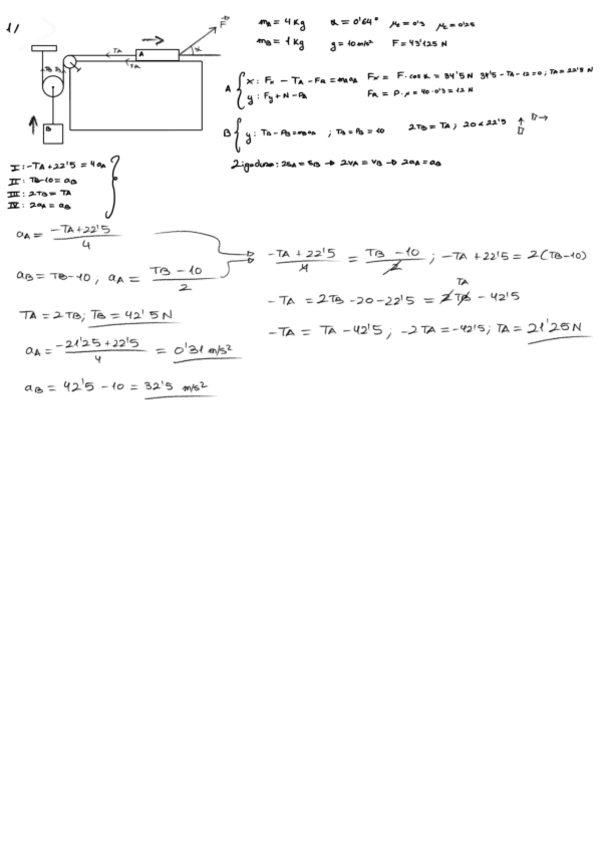 1/
F
mA = 4 Kg    α = 0'64°    μE = 0'3    μC = 0'25
mB = 1 Kg    g = 10 m/s²    F = 43'125 N
TA
A
α
TA
B
A { x: Fx - TA - FR = mA aA    Fx = F · cos α = 34'5 N    34'5 - TA - 12 = 0; TA = 22'5 N
y: Fy + N - PA    FR = P · μ = 40 · 0'3 = 12 N
B { y: TB - PB = mB aB ; TB = PB = 10    2TB = TA ; 20 < 22'5
2 ligadura: 2SA = SB → 2VA = VB → 2aA = aB
I: -TA + 22'5 = 4aA
II: TB - 10 = aB
III: 2TB = TA
IV: 2aA = aB
aA = (-TA + 22'5)/4
(-TA + 22'5)/4 = (TB - 10)/2 ; -TA + 22'5 = 2(TB - 10)
aB = TB - 10, aA = (TB - 10)/2
-TA = 2TB - 20 - 22'5 = 2TB TA - 42'5
TA = 2TB; TB = 42'5 N
-TA = TA - 42'5 ; -2TA = -42'5; TA = 21'25 N
aA = (-21'25 + 22'5)/4 = 0'31 m/s²
aB = 42'5 - 10 = 32'5 m/s²